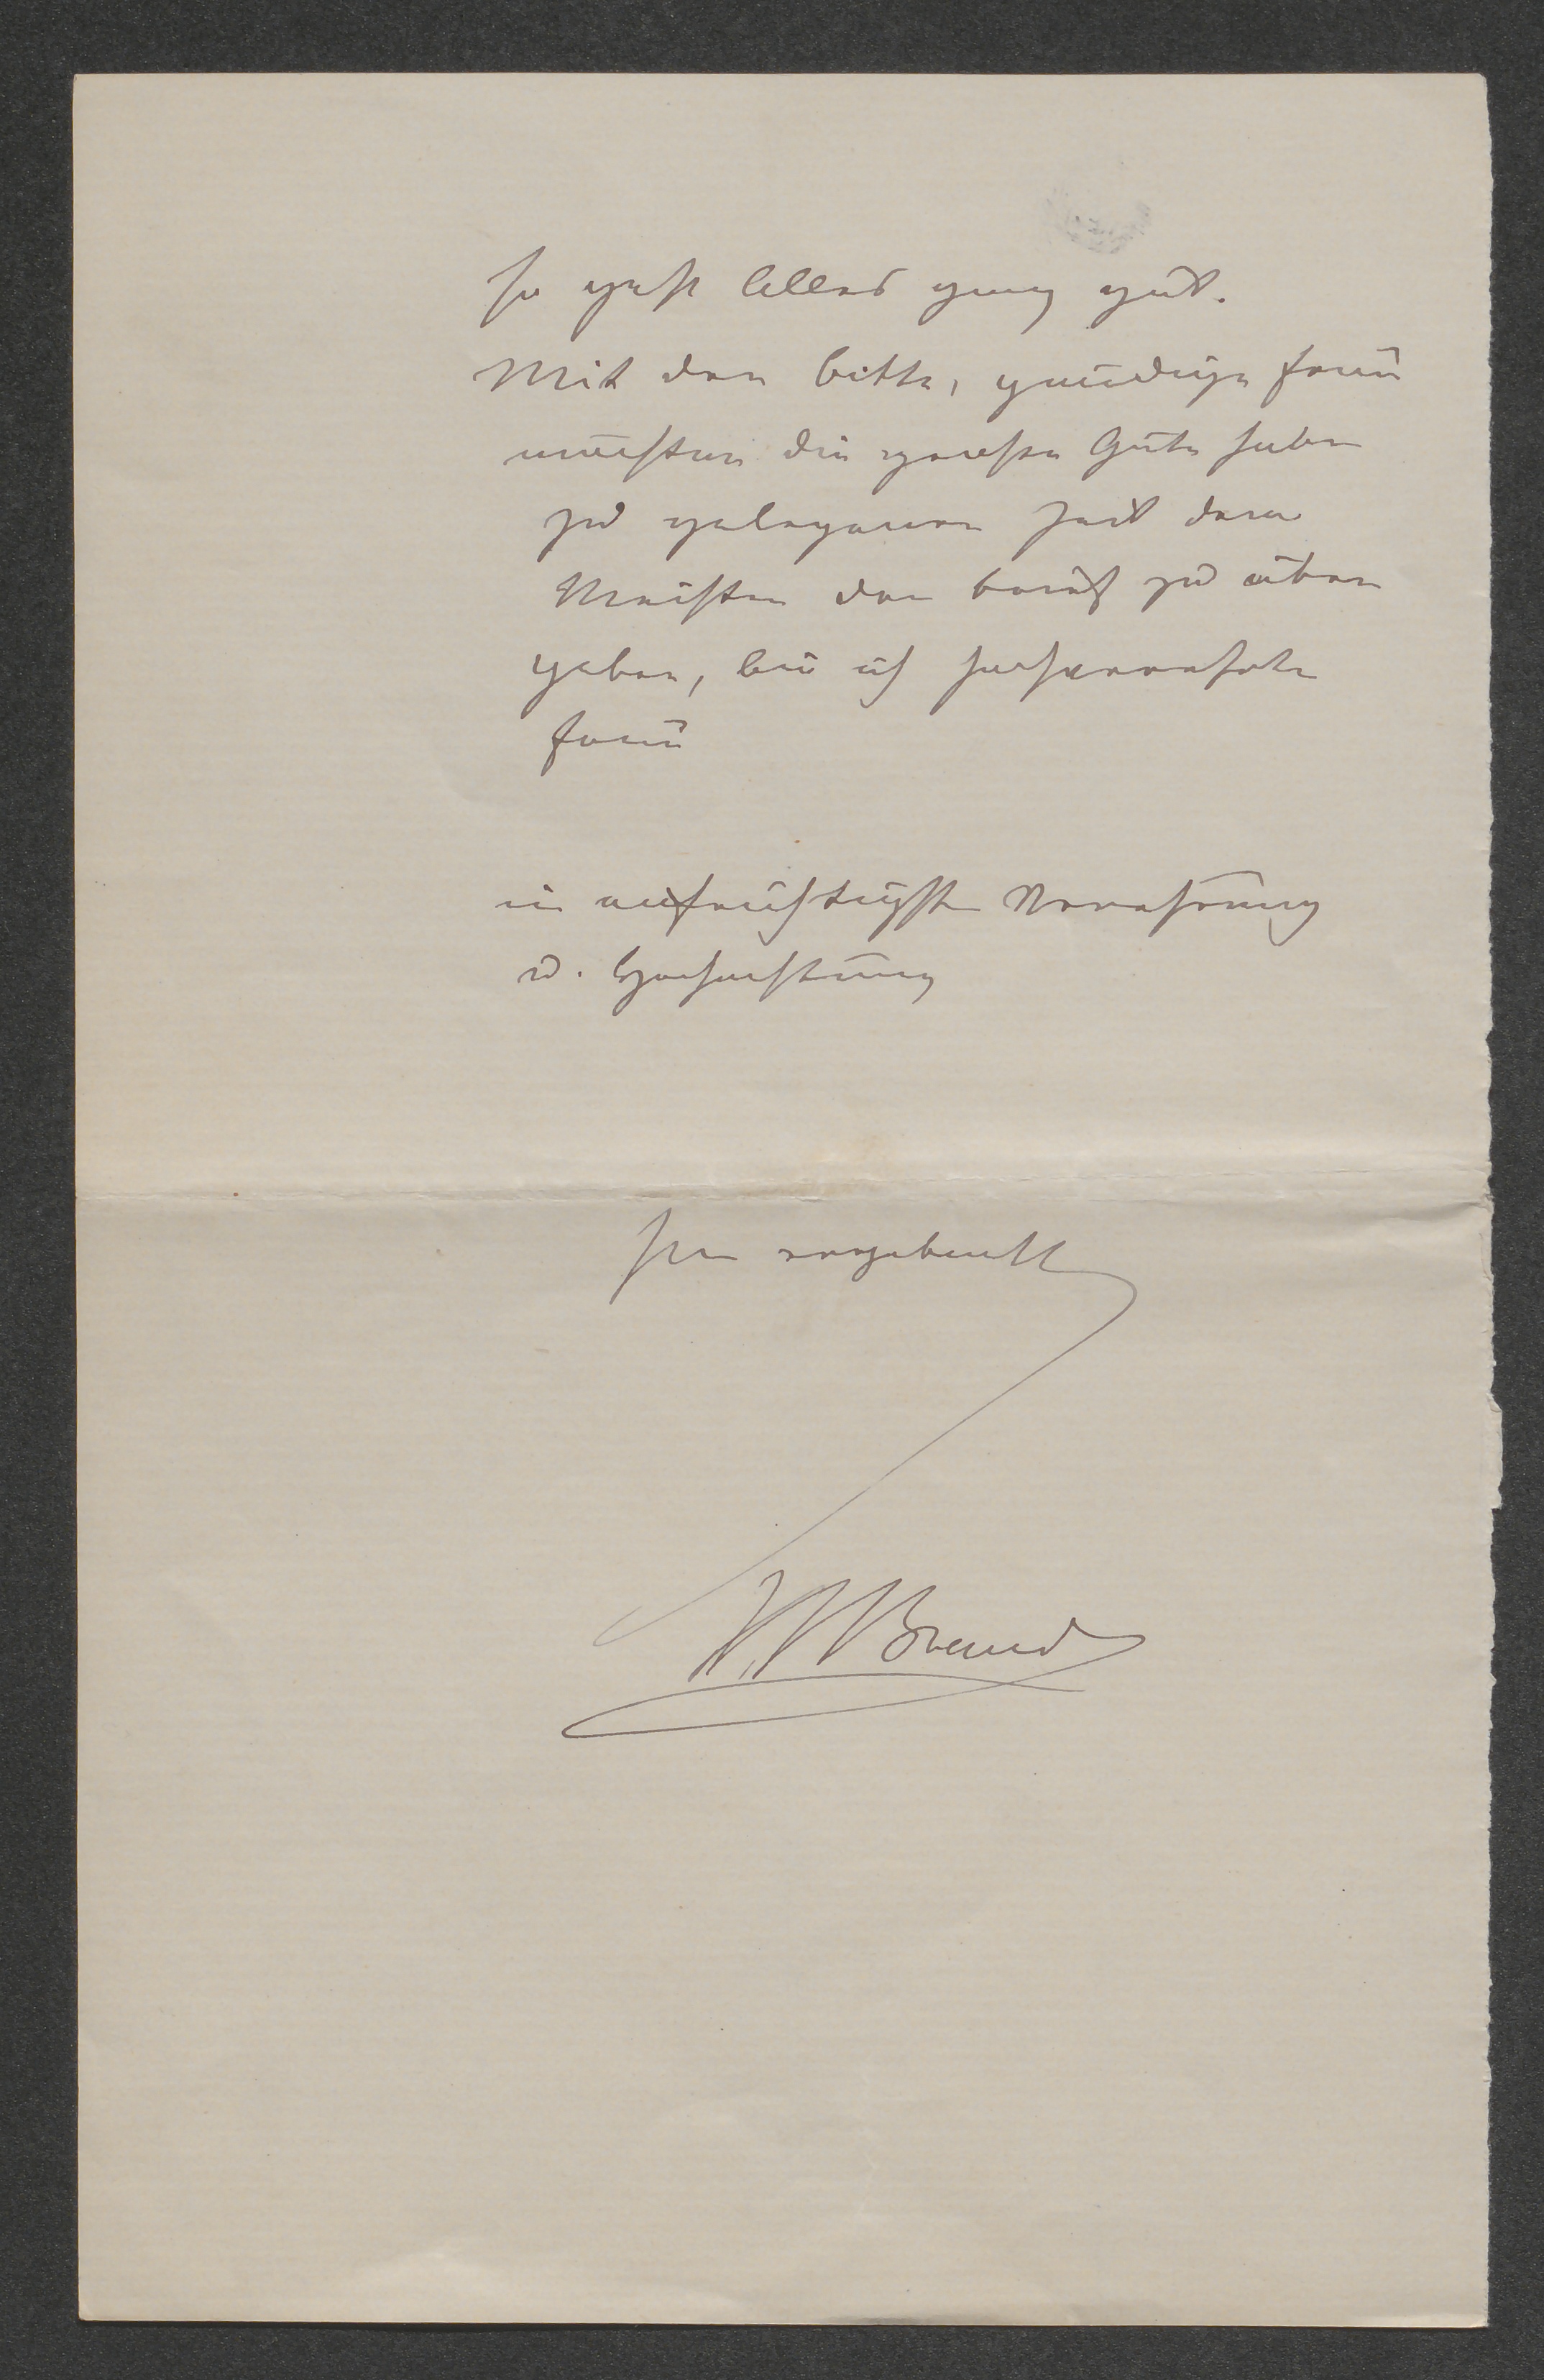 so geht Alles ganz gut.
Mit der bitte, gnaedige frau
moechten die grosse Güte haben
zu gelegener Zeit dem
Meister den brief zu über
geben, bin ich hochverehrte
frau
in aufrichtigster Verehrung
u. Hochachtung
Ihr ergebenster
Brand